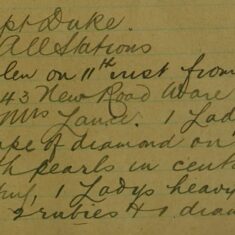 pt Duke.
All Stations
len on 11th inst from
43 New Road
Mrs Lance. 1 Lad
ape of diamond on
th pearls in cent
1 Ladys heavy
2 rubies & 1 diam